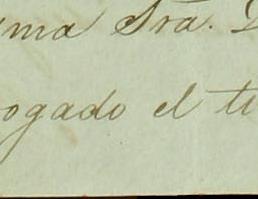 ima Sra. D
ogado el ti